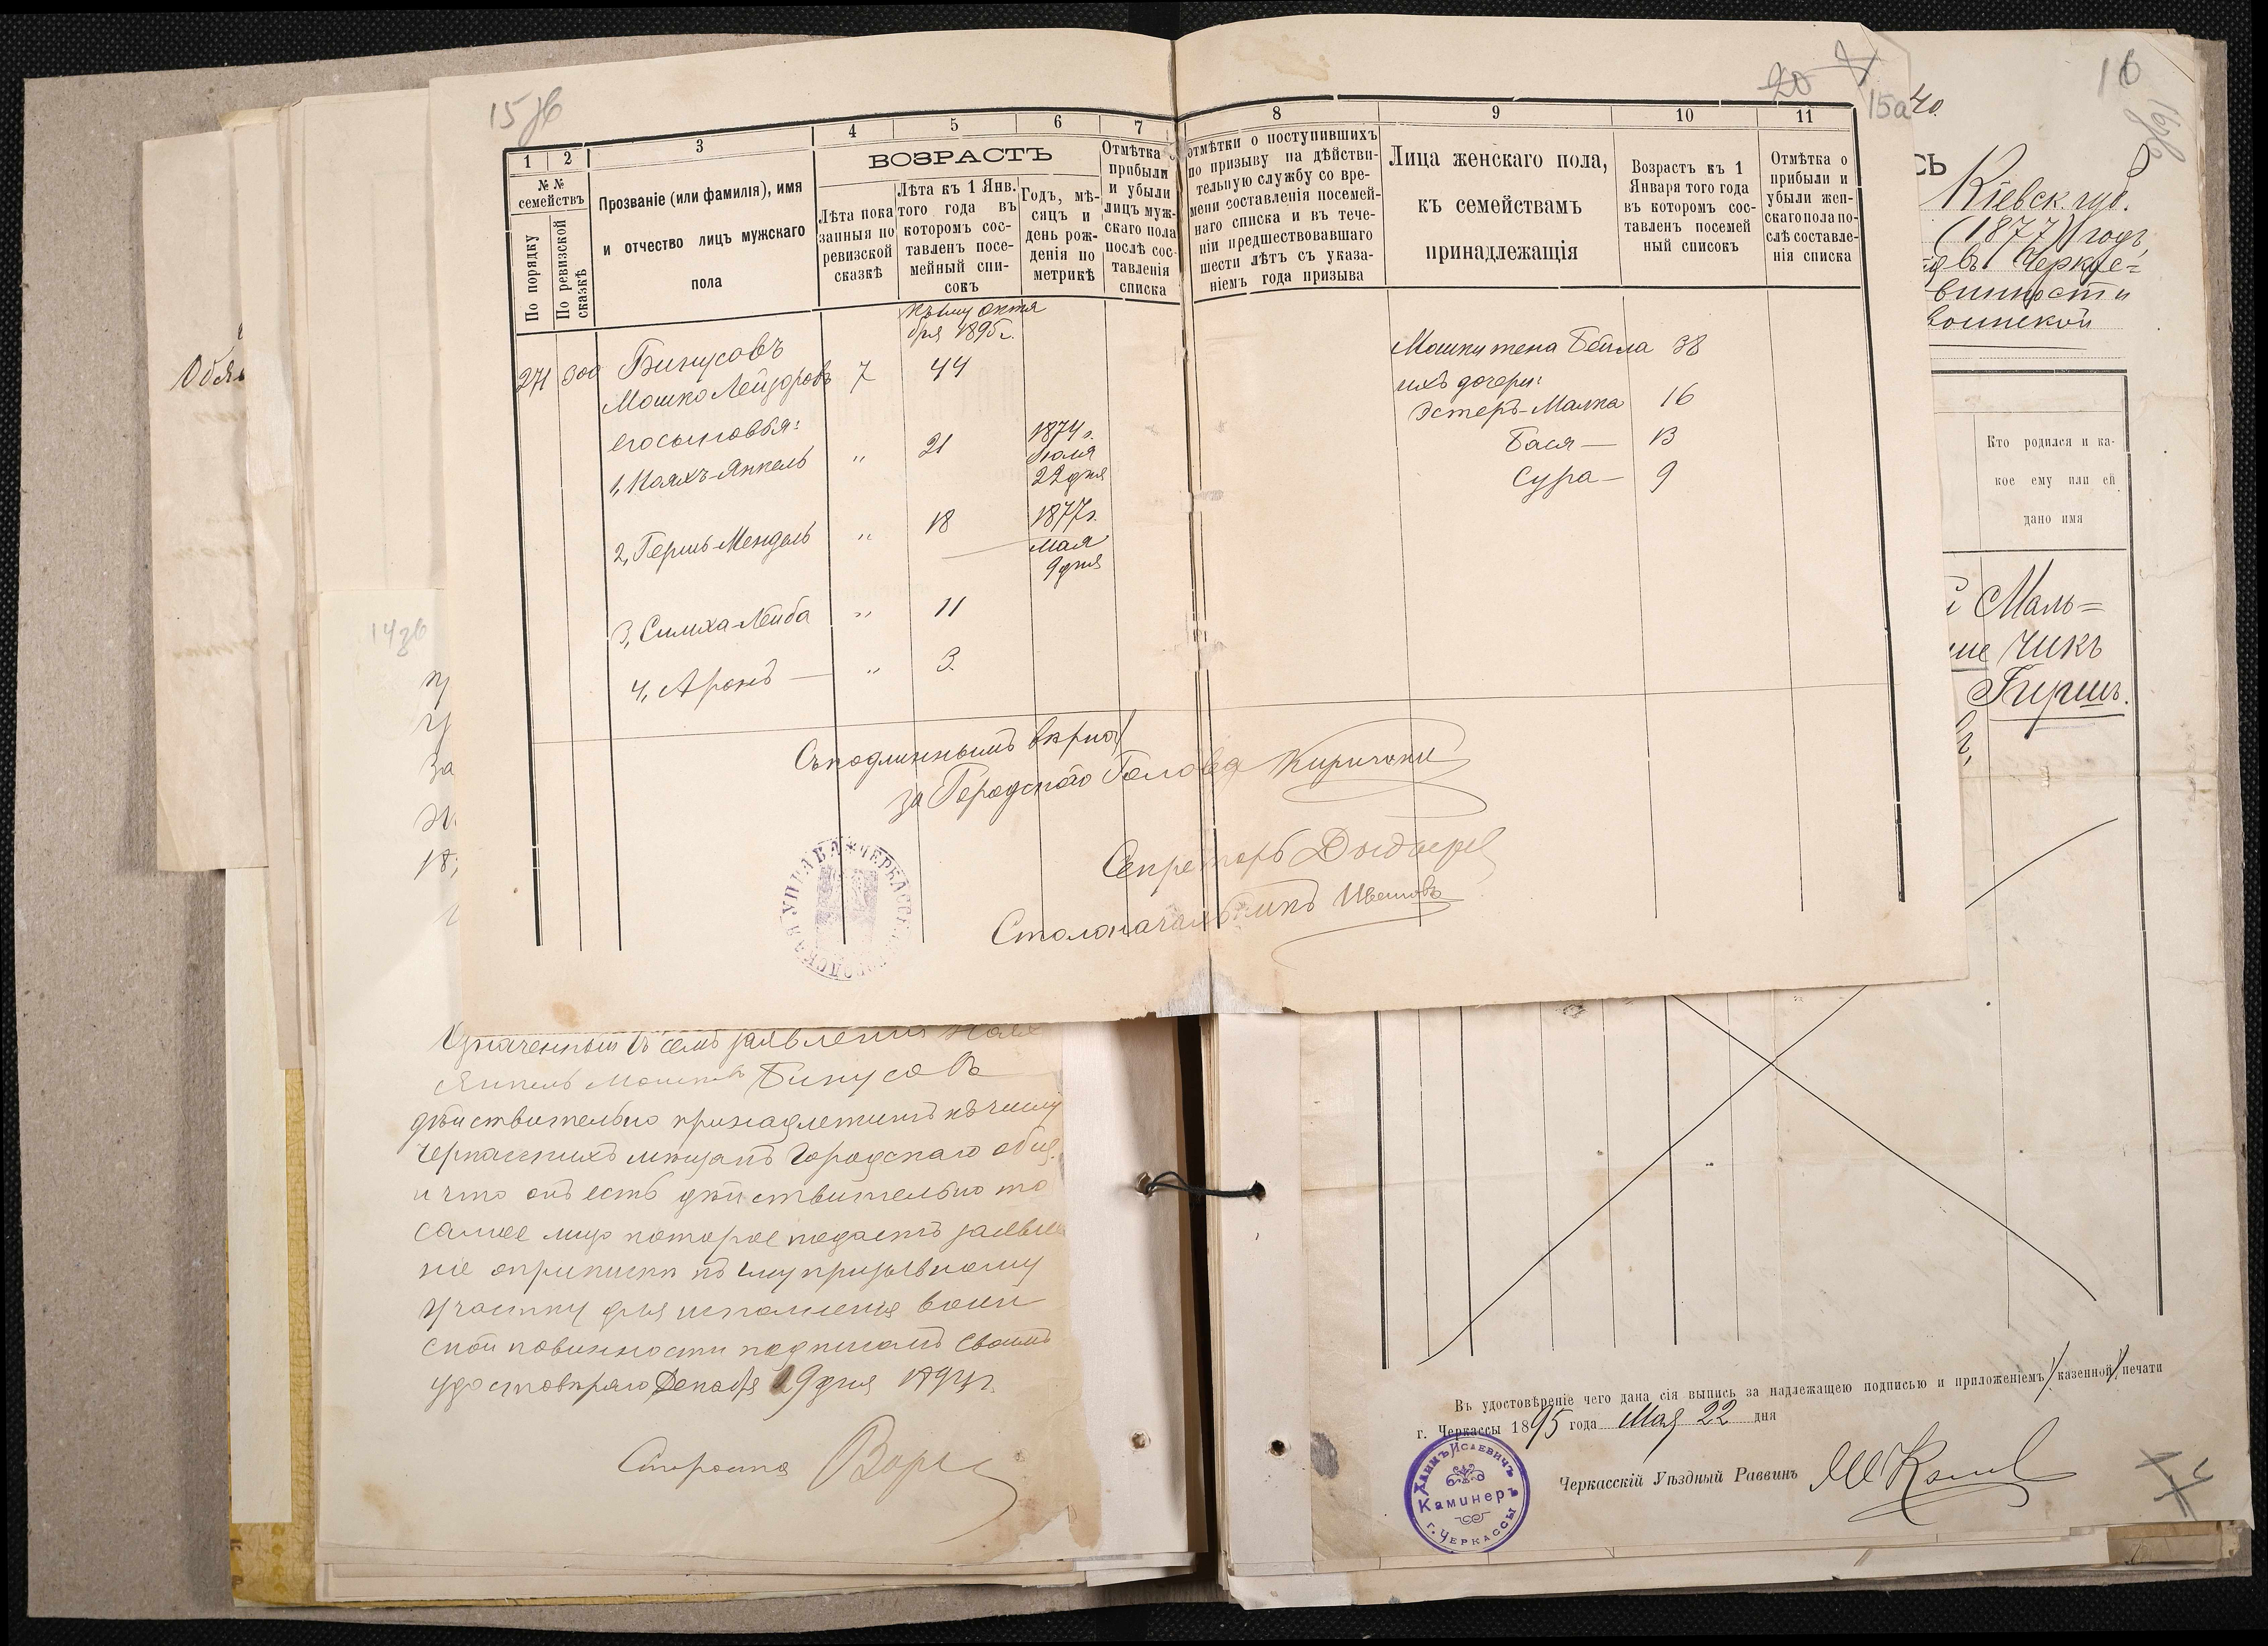 15 зв
20
15а
40.
16
16зв
1
2
3
4
5
6
7
8
9
10
11
№ №
семействъ
По порядку
По ревизской
сказкѣ
Прозваніе (или фамилія), имя
и отчество лицъ мужскаго
пола
ВОЗРАСТЪ
Лѣта пока
занныя по
ревизской
сказкѣ
Лѣта къ 1 Янв.
того года въ
которомъ сос-
тавленъ посе-
мейный спи-
сокъ
Годъ, мѣ-
сяцъ и
день рож-
денія по
метрикѣ
Отмѣтка о
прибыли
и убыли
лицъ муж-
скаго пола
послѣ сос-
тавленія
списка
отмѣтки о поступившихъ
по призыву на дѣйстви-
тельную службу со вре-
мени составленія посемей-
наго списка и въ тече-
ніи предшествовавшаго
шести лѣтъ съ указа-
ніемъ года призыва
Лица женскаго пола,
къ семействамъ
принадлежащія
Возрастъ къ 1
Января того года
въ которомъ сос-
тавленъ посемей
ный списокъ
Отмѣтка о
прибыли и
убыли жен-
скаго пола по-
слѣ составле-
нія списка
къ 1му октя
бря 1895 г.
271 300 Бинусовъ
Мошко Лейзоровъ 7 44
его сыновья:
1, Ноахъ-Янкель " 21 1874 г.
Июля
22 дня
2, Гершъ-Мендель " 18 1877 г.
Мая
9 дня
3, Симха-Лейба " 11
4, Аронъ — " 3.
Мошки жена Бейла 38
ихъ дочери:
Эстеръ-Малка 16
Бася — 13
Сура — 9
Съ подлиннымъ вѣрно:
за Городского Голова Кириченко
Секретарь
Столоначальникъ Ивановъ
УПРАВА ЧЕРКАССКАЯ ГОРОДСКАЯ
СЬ
Кіевск. губ.
(1877) годъ
Черкас=
винности
воинской
Кто родился и ка-
кое ему или ей
дано имя
Маль=
чикъ
Гиршъ.
14 зв
Обяз
За
18
Означенный въ семъ заявленіи Ноах
Янкель Мошковъ Бинусовъ
дѣйствительно принадлежитъ къ числу
Черкасскихъ мѣщанъ Городскаго общ.
и что онъ есть дѣйствительно то
самое лицо которое подаетъ заявле
ніе о припискѣ къ 1му призывному
участку для исполненія воин
ской повинности подписомъ своимъ
удостовѣряю Декабря 19 дня 1894 г.
Староста
Въ удостовѣреніе чего дана сія выпись за надлежащею подписью и приложеніемъ казенной печати
г. Черкассы 1895 года Мая 22 дня
Черкасскій Уѣздный Раввинъ
Хаимъ Исаевичъ
Каминеръ
г. Черкассы